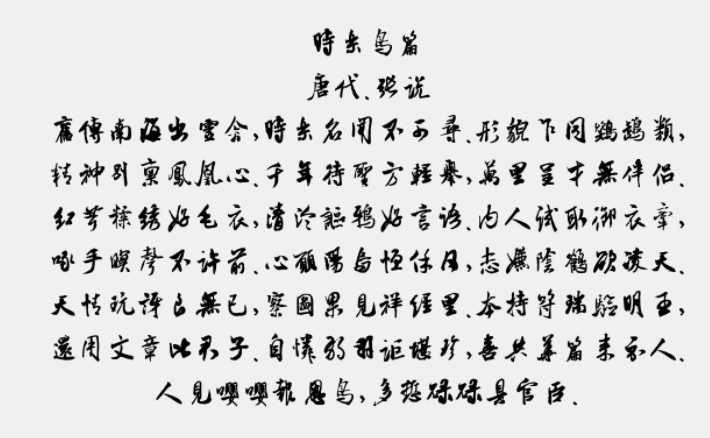 時樂鸟篇
唐代、张说
舊傳南海出靈禽,時樂名聞不可尋、形貌乍同鸚鵡類,
精神別稟鳳凰心、千年待聖方輕舉,萬里呈才無伴侶、
红茸糅绣好毛衣,清泠謳鴉好言语、内人试取御衣牽,
啄手暝聲不许前、心願陽烏恆保日,志嫌陰鶴欲凌天、
天情玩訝良無已,察圖果見祥经里、本持符瑞驗明王,
還用文章比君子、自憐弱羽詎堪珍,喜共華篇来示人、
人見嚶嚶報恩鸟,多慚碌碌具官臣、